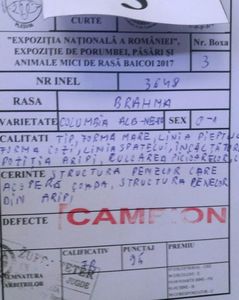 S
CURTE
"EXPOZIȚIA NAȚIONALĂ A ROMÂNIEI",
EXPOZIȚIE DE PORUMBEI, PĂSĂRI ȘI
ANIMALE MICI DE RASĂ BAICOI 2017
Nr. Boxa
3
NR INEL 3648
RASA BRAHMA
VARIETATE COLUMBIA ALB-NEGRU SEX 0-1
CALITATI TIP, FORMA MARE, LINIA PIEPTULUI
FORMA COZII, LINIA SPATELUI, INCALTATURA
POZITIA ARIPI, CULOAREA PICIOARELOR
CERINTE STRUCTURA PENELOR CARE
ACOPERĂ COADA, STRUCTURA PENELOR
DIN ARIPI
DEFECTE CAMPION
CALIFICATIV PUNCTAJ PREMIU
94
SEMNATURA
ARBITRILOR
PETER
JUDGE